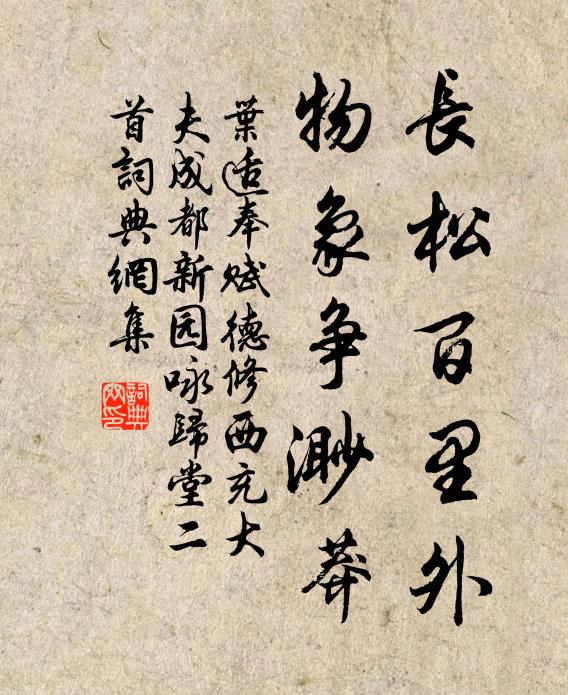 長松百里外
物象争渺莽
葉适奉赋德修西充大
夫成都新园咏歸堂二
首詞典網集
詞典网印